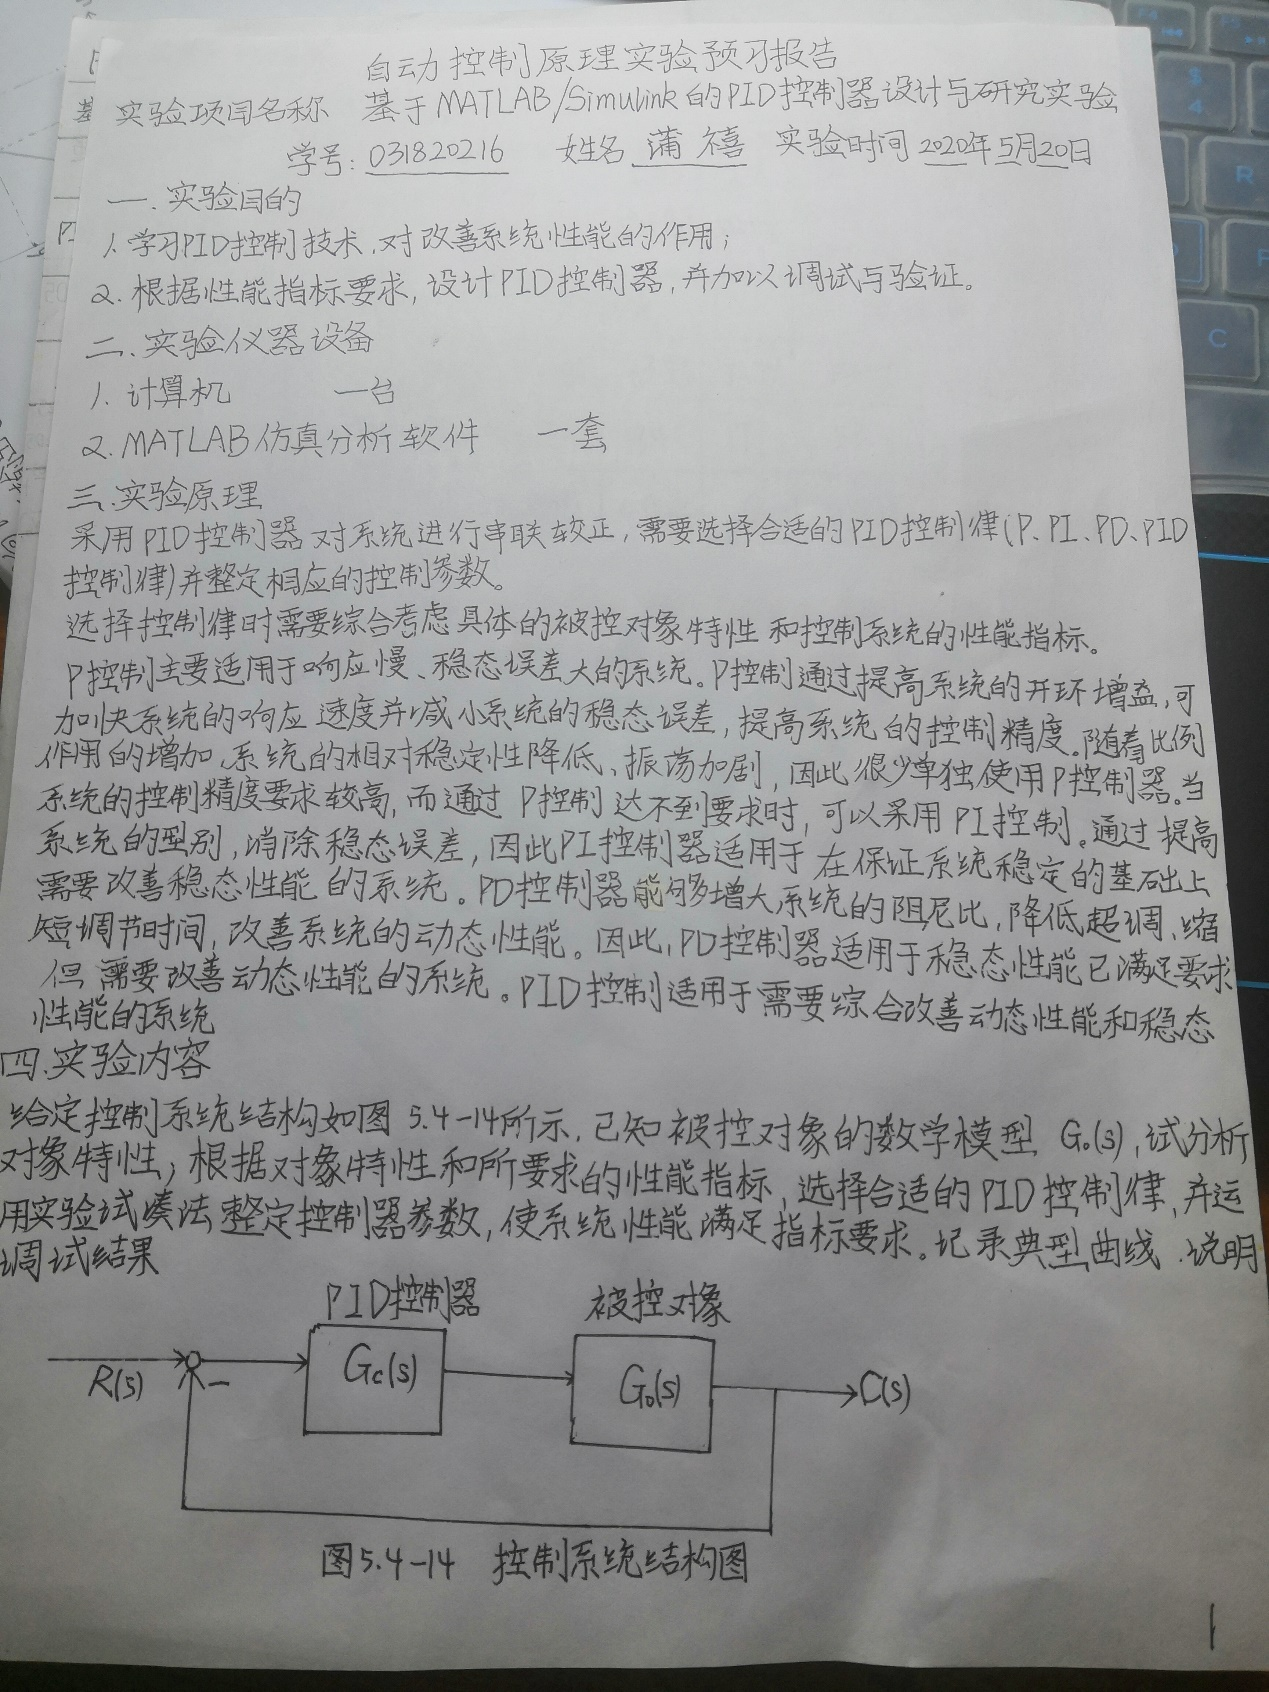 自动控制原理实验预习报告
实验项目名称 基于MATLAB/Simulink的PID控制器设计与研究实验
学号:031820216 姓名 蒲禧 实验时间 2020年5月20日
一.实验目的
1.学习PID控制技术,对改善系统性能的作用;
2.根据性能指标要求,设计PID控制器,并加以调试与验证。
二.实验仪器设备
1.计算机 一台
2.MATLAB仿真分析软件 一套
三.实验原理
采用PID控制器对系统进行串联较正,需要选择合适的PID控制律(P、PI、PD、PID
控制律)并整定相应的控制参数。
选择控制律时需要综合考虑具体的被控对象特性和控制系统的性能指标。
P控制主要适用于响应慢、稳态误差大的系统。P控制通过提高系统的开环增益,可
加快系统的响应速度并减小系统的稳态误差,提高系统的控制精度。随着比例
作用的增加,系统的相对稳定性降低、振荡加剧,因此很少单独使用P控制器。当
系统的控制精度要求较高,而通过P控制达不到要求时,可以采用PI控制。通过提高
系统的型别,消除稳态误差,因此PI控制器适用于在保证系统稳定的基础上
需要改善稳态性能的系统。PD控制器能够增大系统的阻尼比,降低超调、缩
短调节时间,改善系统的动态性能。因此,PD控制器适用于稳态性能已满足要求
但需要改善动态性能的系统。PID控制适用于需要综合改善动态性能和稳态
性能的系统
四.实验内容
给定控制系统结构如图5.4-14所示,已知被控对象的数学模型G₀(s),试分析
对象特性,根据对象特性和所要求的性能指标,选择合适的PID控制律,并运
用实验试凑法整定控制器参数,使系统性能满足指标要求。记录典型曲线、说明
调试结果
PID控制器 被控对象
R(s) - Gc(s) G₀(s) C(s)
图5.4-14 控制系统结构图
1